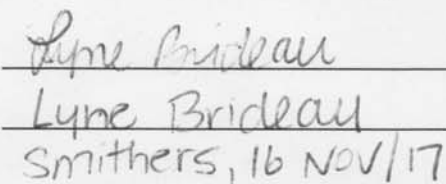 Lyne Brideau
Lyne Brideau
Smithers, 16 NOV/17